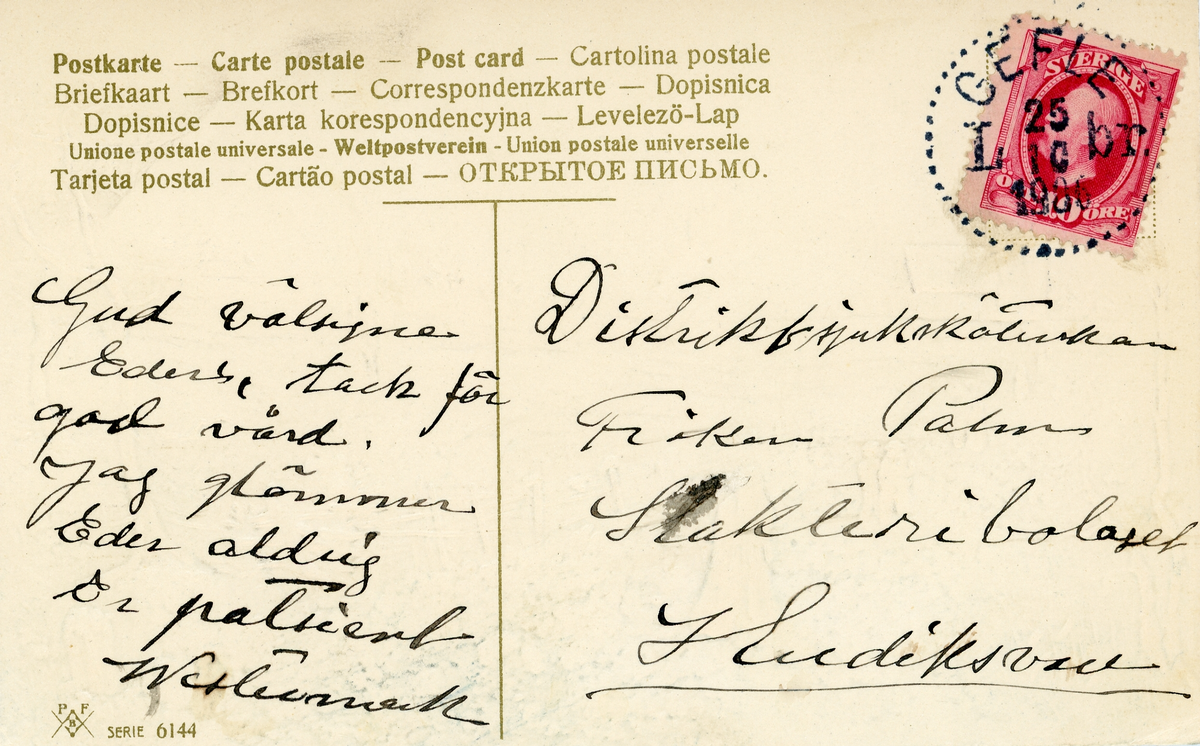 Postkarte — Carte postale — Post card — Cartolina postale
Briefkaart — Brefkort — Correspondenzkarte — Dopisnica
Dopisnice — Karta korespondencyjna — Levelező-Lap
Unione postale universale - Weltpostverein - Union postale universelle
Tarjeta postal — Cartão postal — ОТКРЫТОЕ ПИСЬМО.
GEFLE
25
10
L. br.
SVERIGE
10 ÖRE
Gud välsigne
Eder, tack för
god vård.
Jag glömmer
Eder aldrig
Er patsient
Westermark
Distriktssjuksköterskan
Fröken Palm
Slakteribolaget
Hudiksvall
P F
B
SERIE 6144